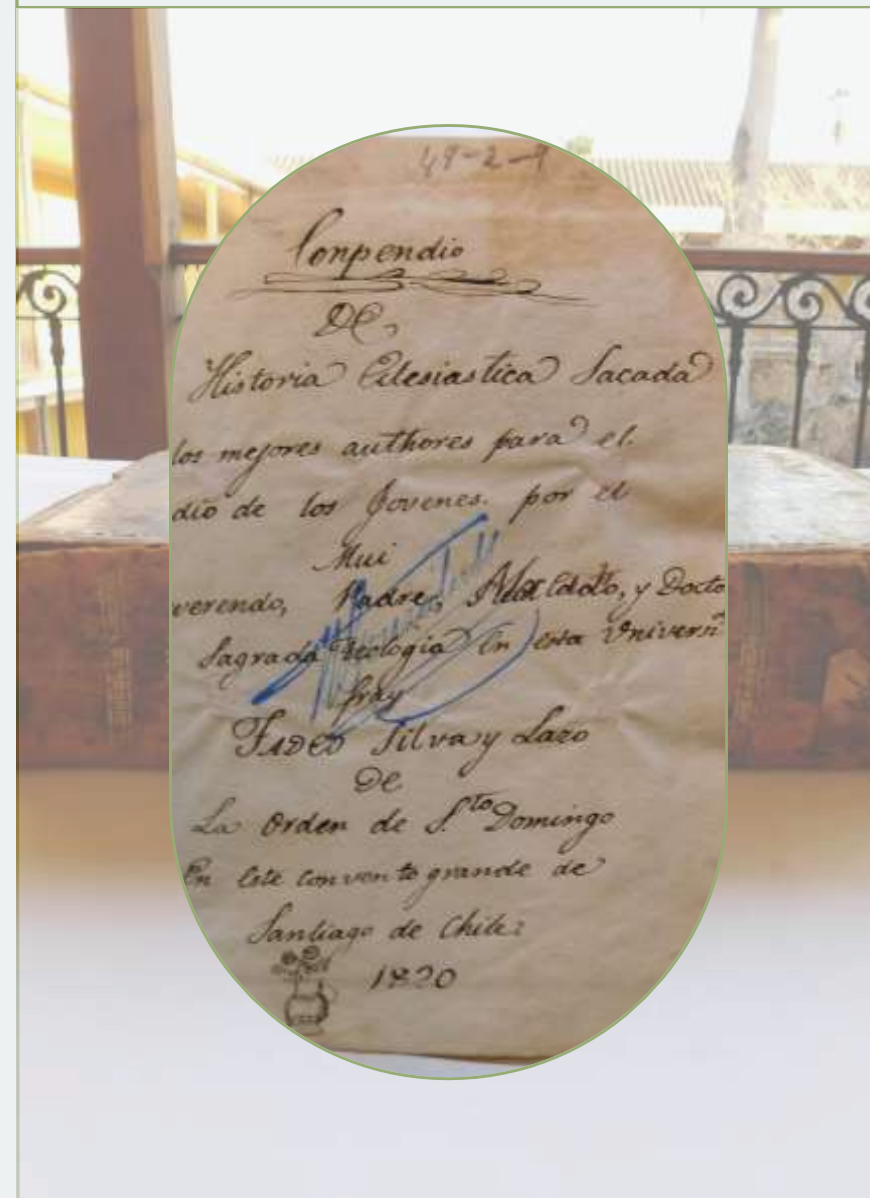 49-2-9
Conpendio
De
Historia Eclesiastica Sacada
los mejores authores para el
dio de los Jovenes. por el
Mui
verendo, Padre, y Docto
Sagrada Teologia En esta Univers
fray
Tadeo Silva y Lazo
De
La Orden de S.to Domingo
En Este convento grande de
Santiago de Chile
1820